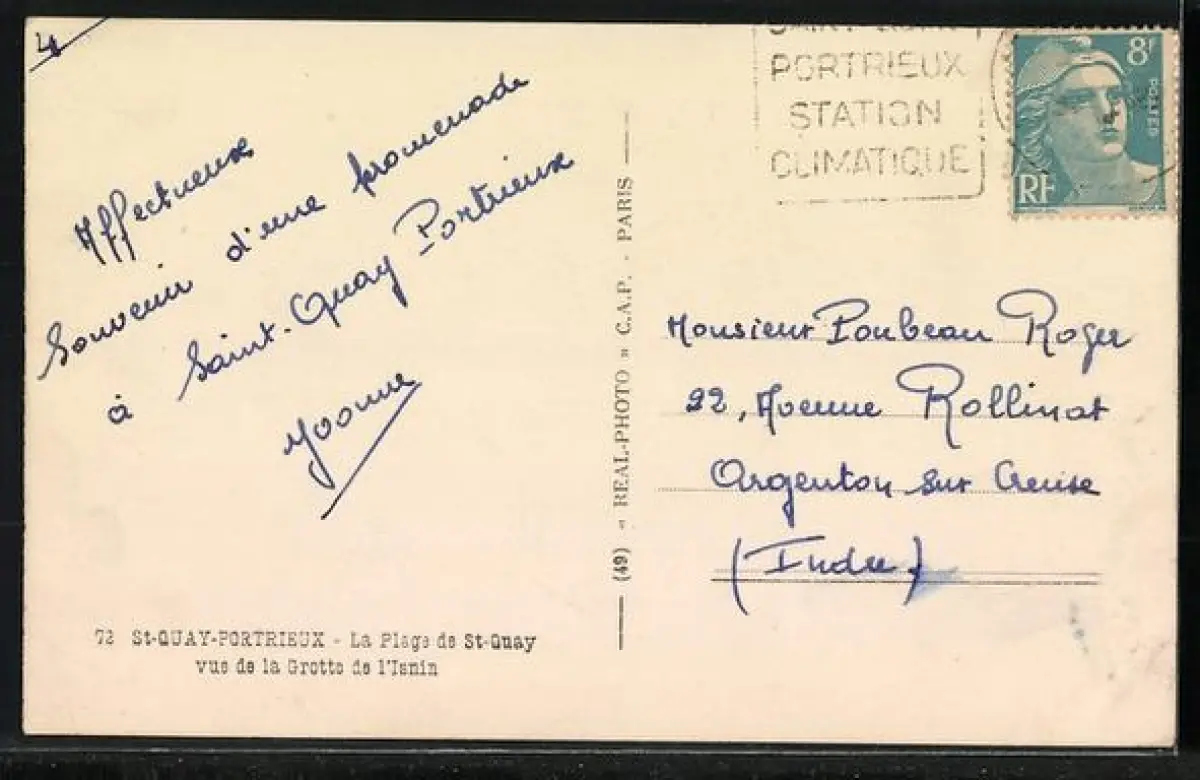 4
Affectueux
Souvenir d'une promenade
à Saint-Quay Portrieux
Yvonne
72 St-QUAY-PORTRIEUX - La Plage de St-Quay
vue de la Grotte de l'Isnin
(49) « REAL-PHOTO » C.A.P. - PARIS
PORTRIEUX
STATION
CLIMATIQUE
8F
POSTES
RF
Monsieur Poubeau Roger
22, Avenue Rollinat
Argenton sur Creuse
(Indre)